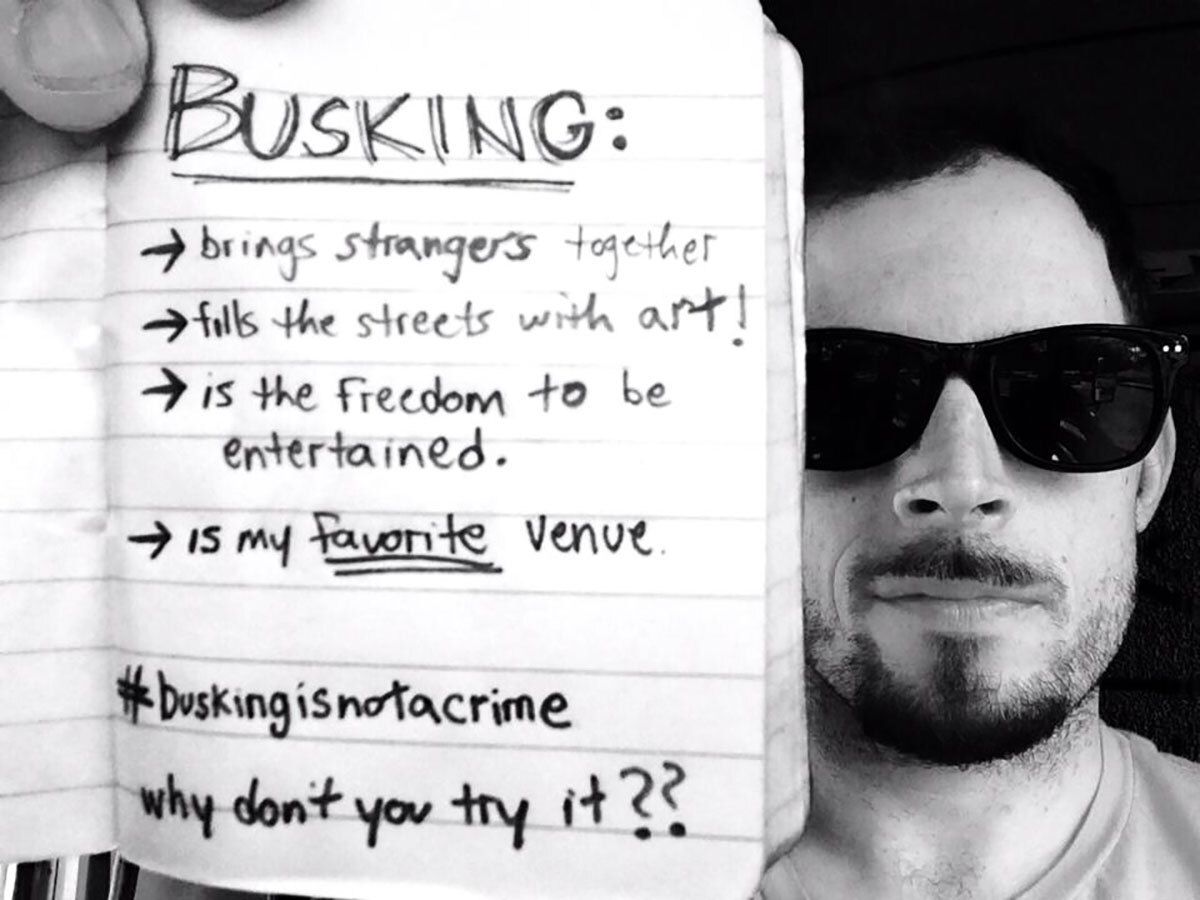 BUSKING:
→ brings strangers together
→ fills the streets with art!
→ is the freedom to be
entertained.
→ is my favorite venue.
#buskingisnotacrime
why don't you try it??